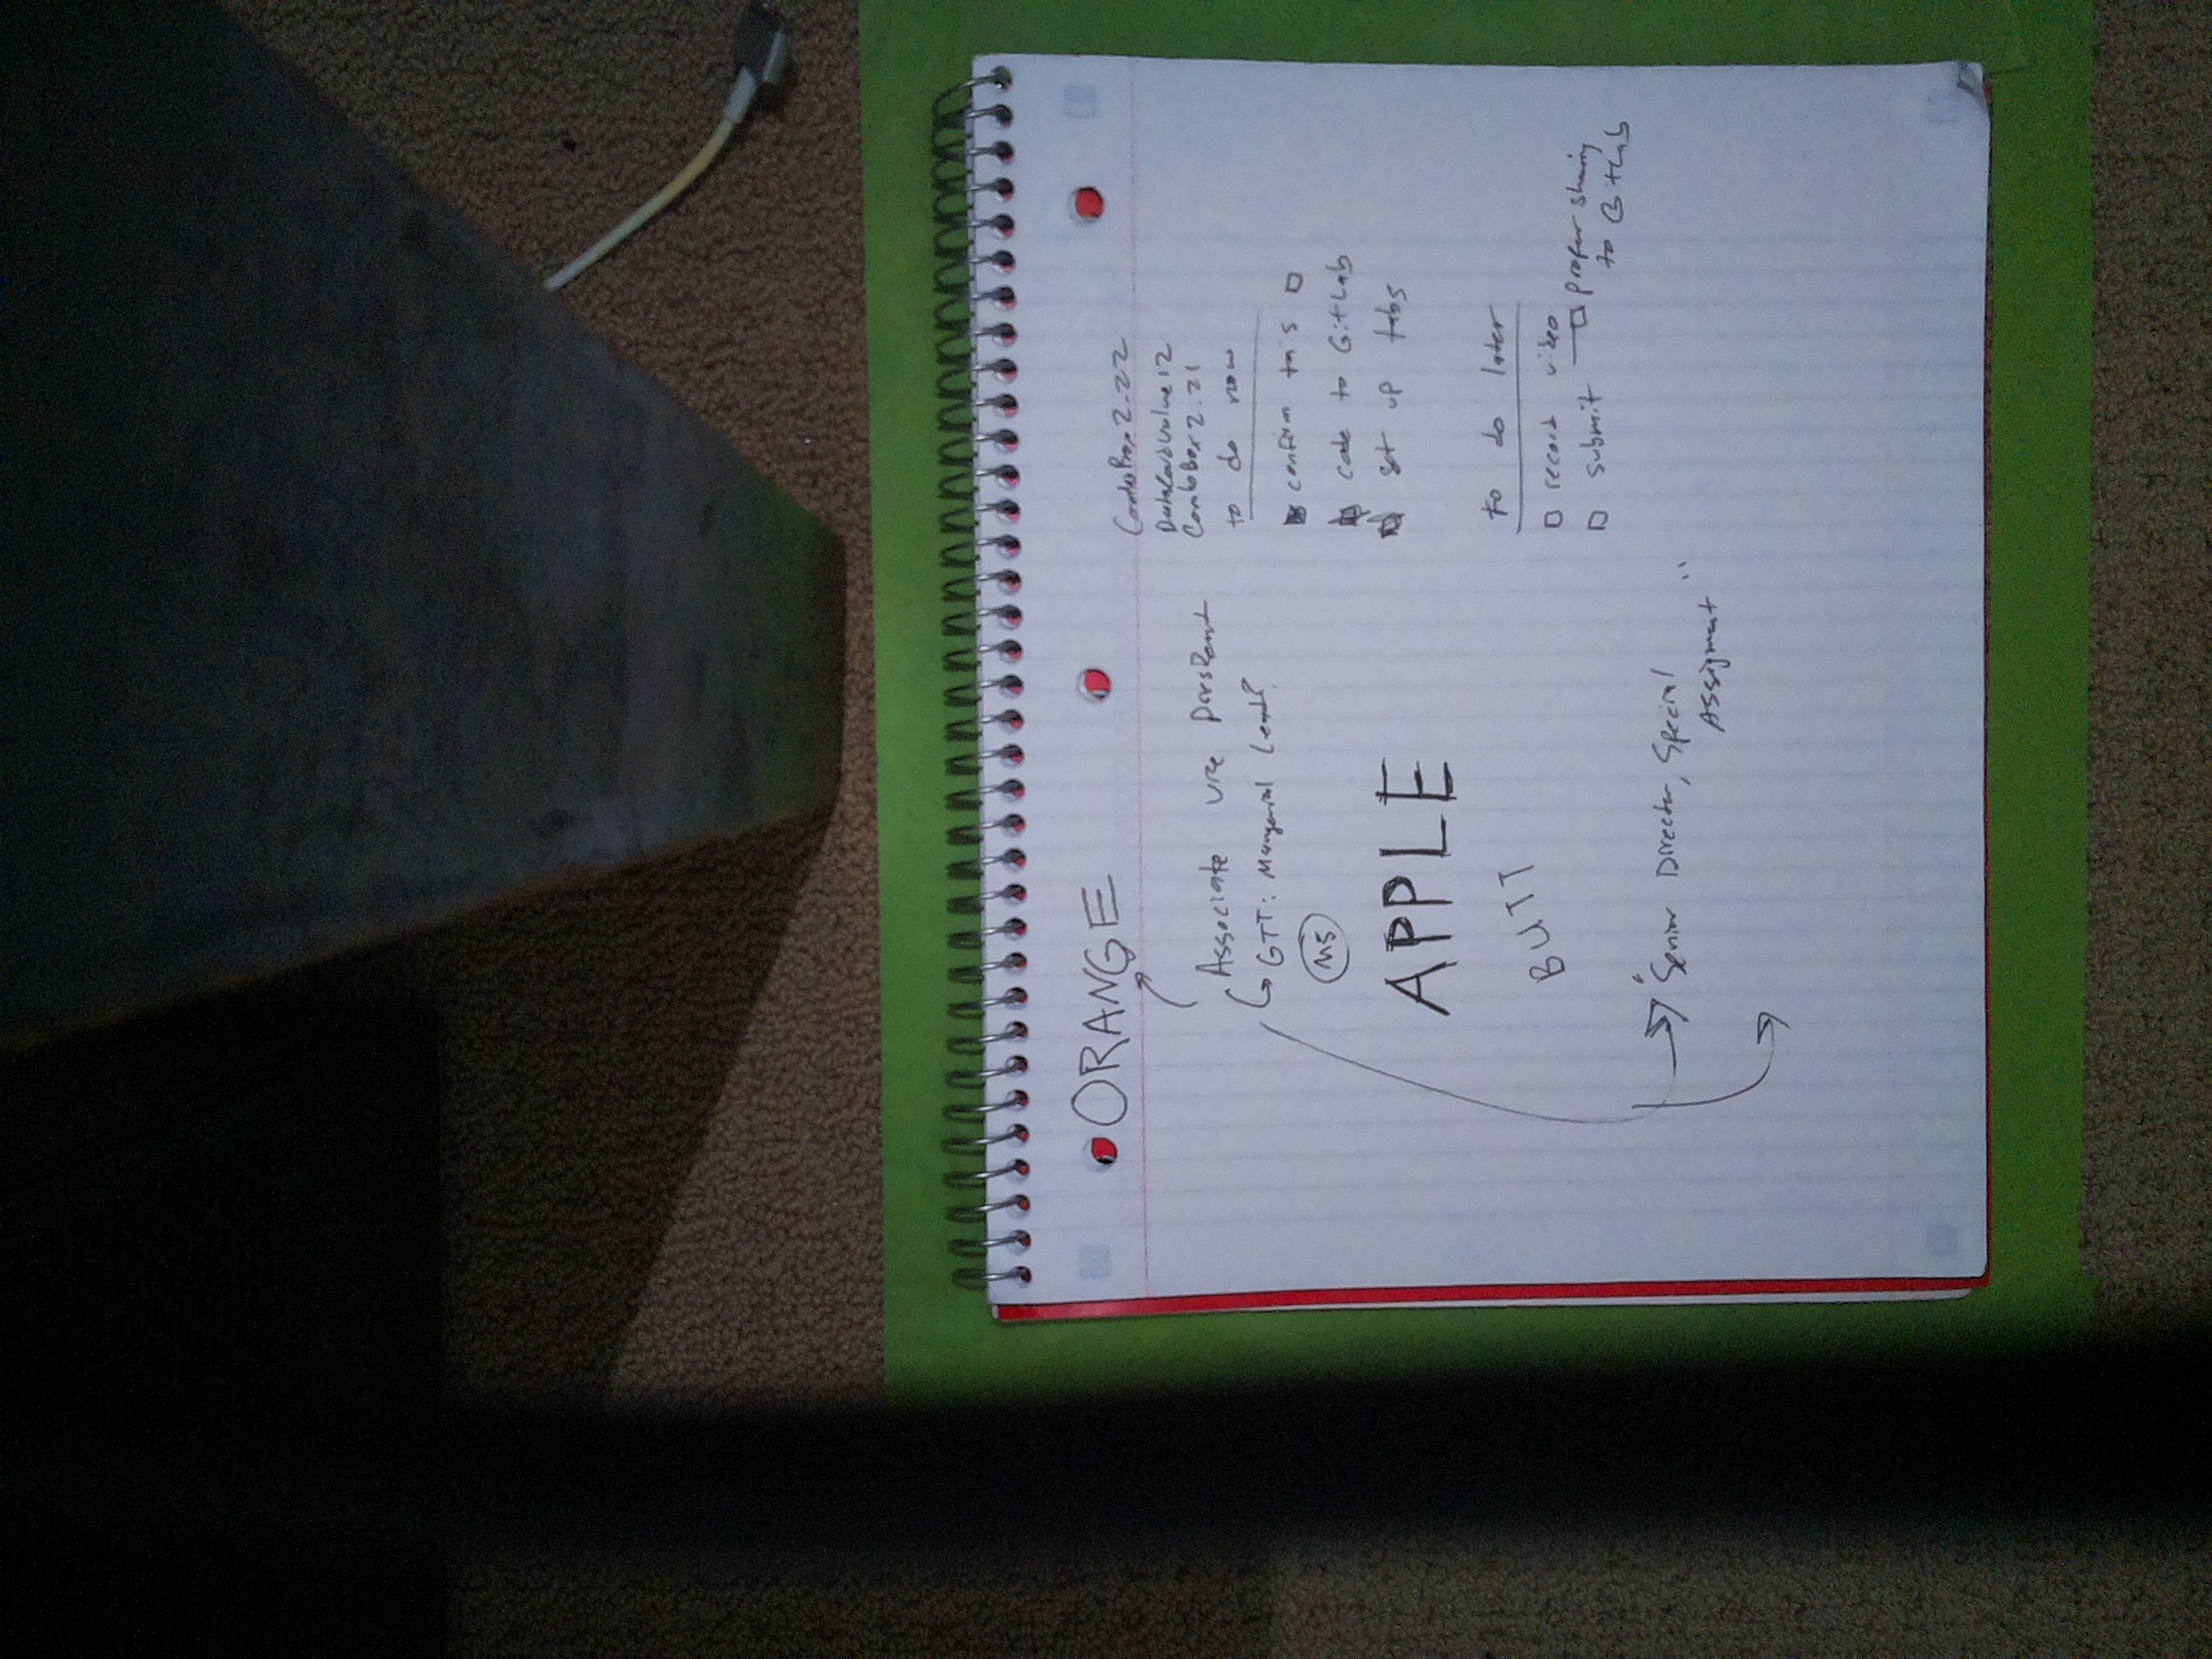 ORANGE
Associate vice President
GTT: Managerial Lead?
MS
APPLE
BUTT
"Senior Director, Special
Assignment"
ComboBox2.22
DataCardValue12
ComboBox2.21
to do now
confirm this
code to GitLab
set up tabs
to do later
record video
submit
proper sharing
to GitLab